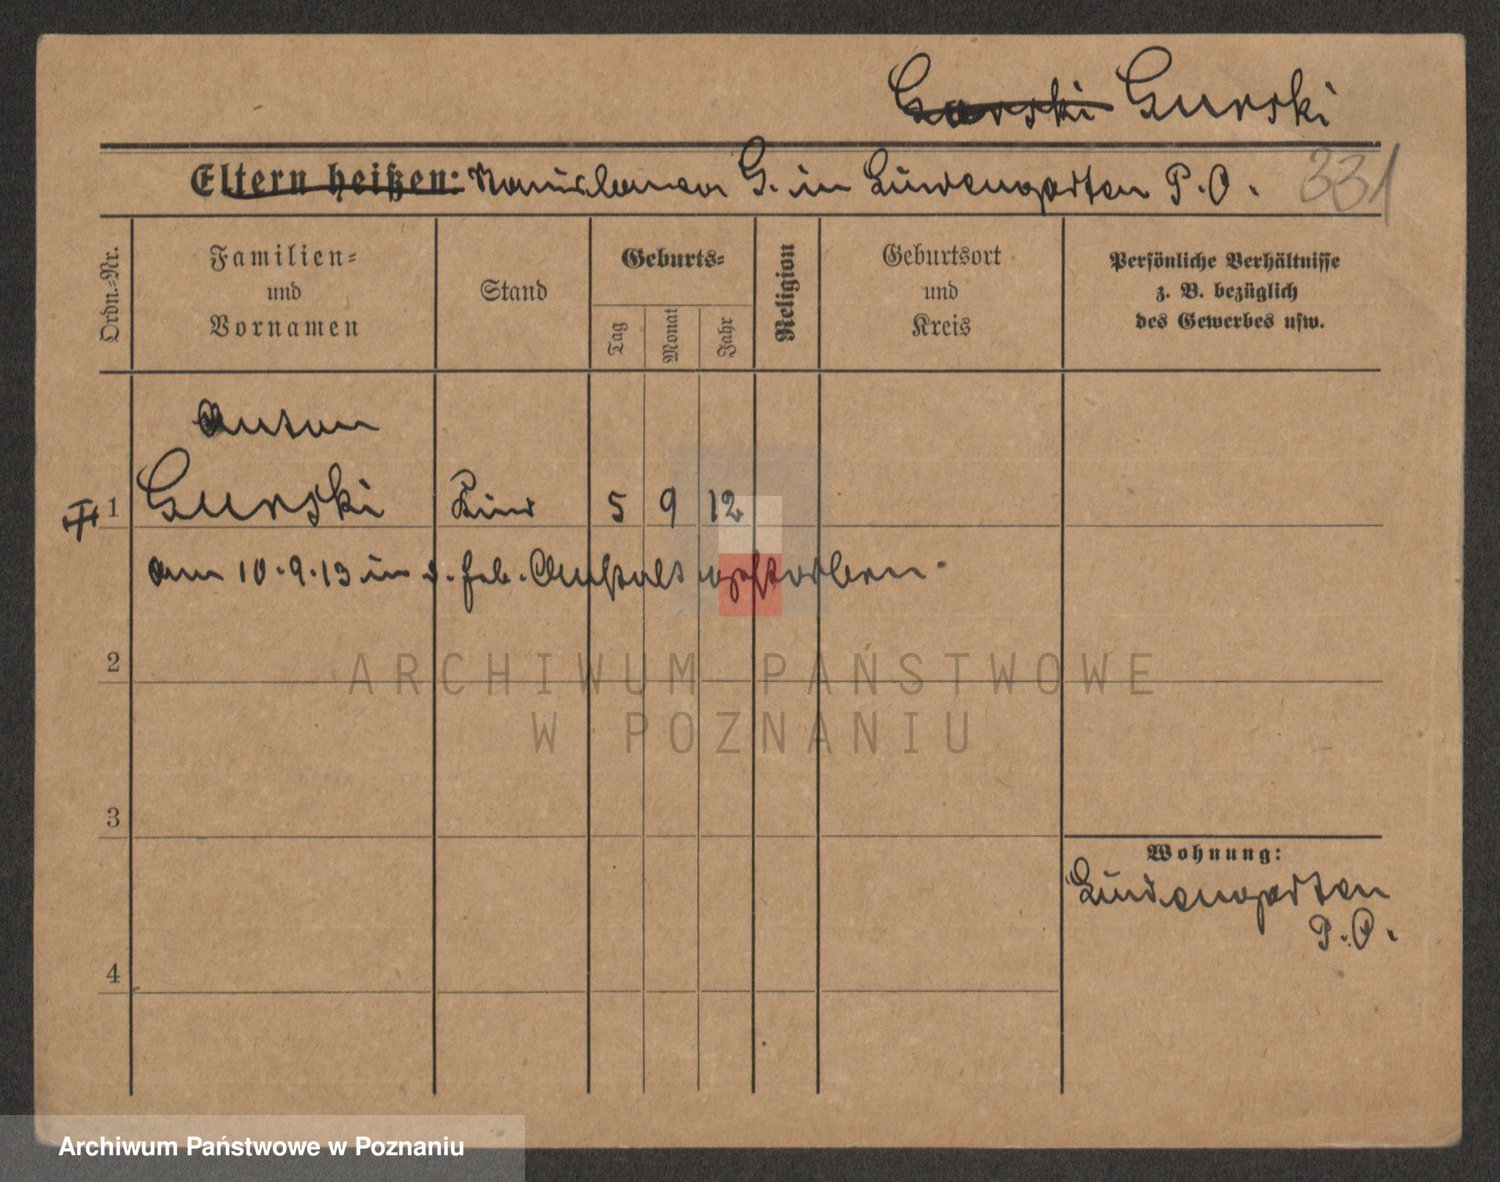 Gorski Gurski
Eltern heißen: Stanislawa G. in Lindengarten P.O.
331
Ordn.-Nr.
Familien-
und
Vornamen
Stand
Geburts-
Tag
Monat
Jahr
Religion
Geburtsort
und
Kreis
Persönliche Verhältnisse
z. B. bezüglich
des Gewerbes usw.
Anton
1 Gurski Kind 5 9 12
am 10.9.13 in d. Heb. Anstalt gestorben.
2
ARCHIWUM PAŃSTWOWE
W POZNANIU
3
Wohnung:
Lindengarten
P.O.
4
Archiwum Państwowe w Poznaniu